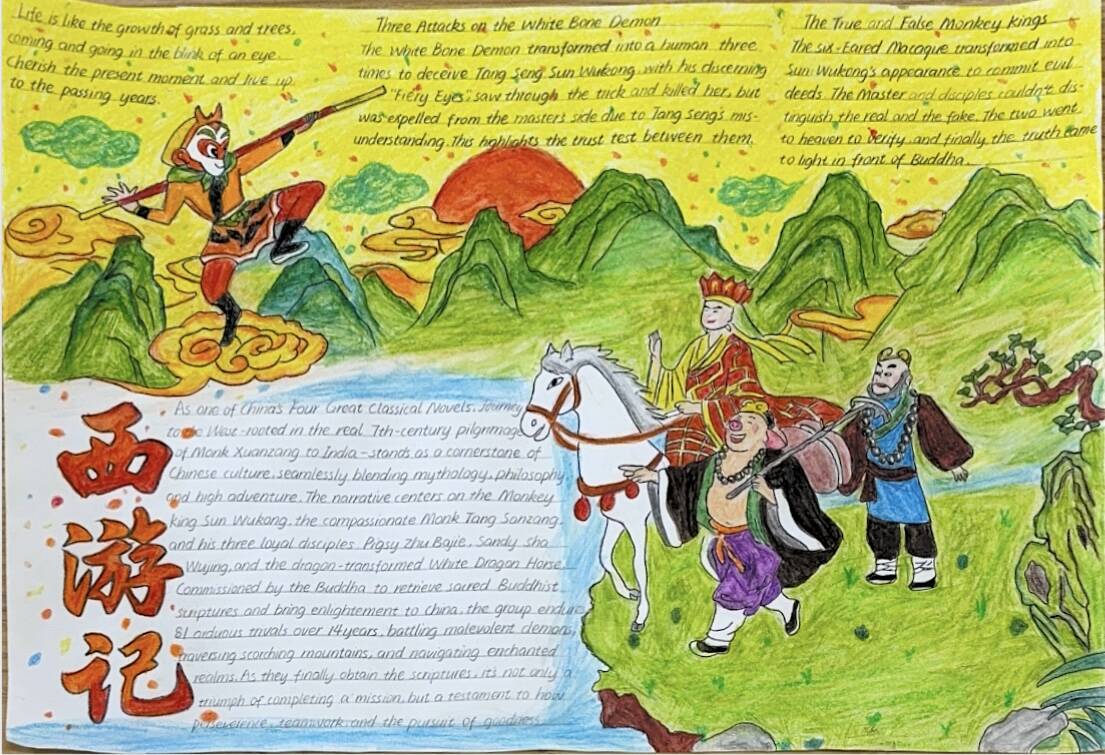 Life is like the growth of grass and trees,
coming and going in the blink of an eye.
Cherish the present moment and live up
to the passing years.
Three Attacks on the White Bone Demon
The White Bone Demon transformed into a human three
times to deceive Tang Seng Sun Wukong, with his discerning
"Fiery Eyes", saw through the trick and killed her, but
was expelled from the masters side due to Tang Seng's mis-
understanding. This highlights the trust test between them.
The True and False Monkey Kings
The six-Eared Macaque transformed into
Sun Wukong's appearance to commit evil
deeds. The Master and disciples couldn't dis-
tinguish the real and the fake. The two went
to heaven to verify, and finally the truth came
to light in front of Buddha.
西
游
记
As one of China's Four Great Classical Novels, Journey
to the West-rooted in the real 7th-century pilgrimage
of Monk Xuanzang to India-stands as a cornerstone of
Chinese culture, seamlessly blending mythology, philosophy
and high adventure. The narrative centers on the Monkey
king Sun Wukong, the compassionate Monk Tang Sanzang,
and his three loyal disciples Pigsy Zhu Bajie, Sandy Sha
Wujing, and the dragon-transformed White Dragon Horse.
Commissioned by the Buddha to retrieve sacred Buddhist
scriptures and bring enlightenment to China, the group endures
81 arduous trivals over 14 years, battling malevolent demons,
traversing scorching mountains, and navigating enchanted
realms. As they finally obtain the scriptures, it's not only a
triumph of completing a mission, but a testament to how
perseverence, teamwork, and the pursuit of goodness